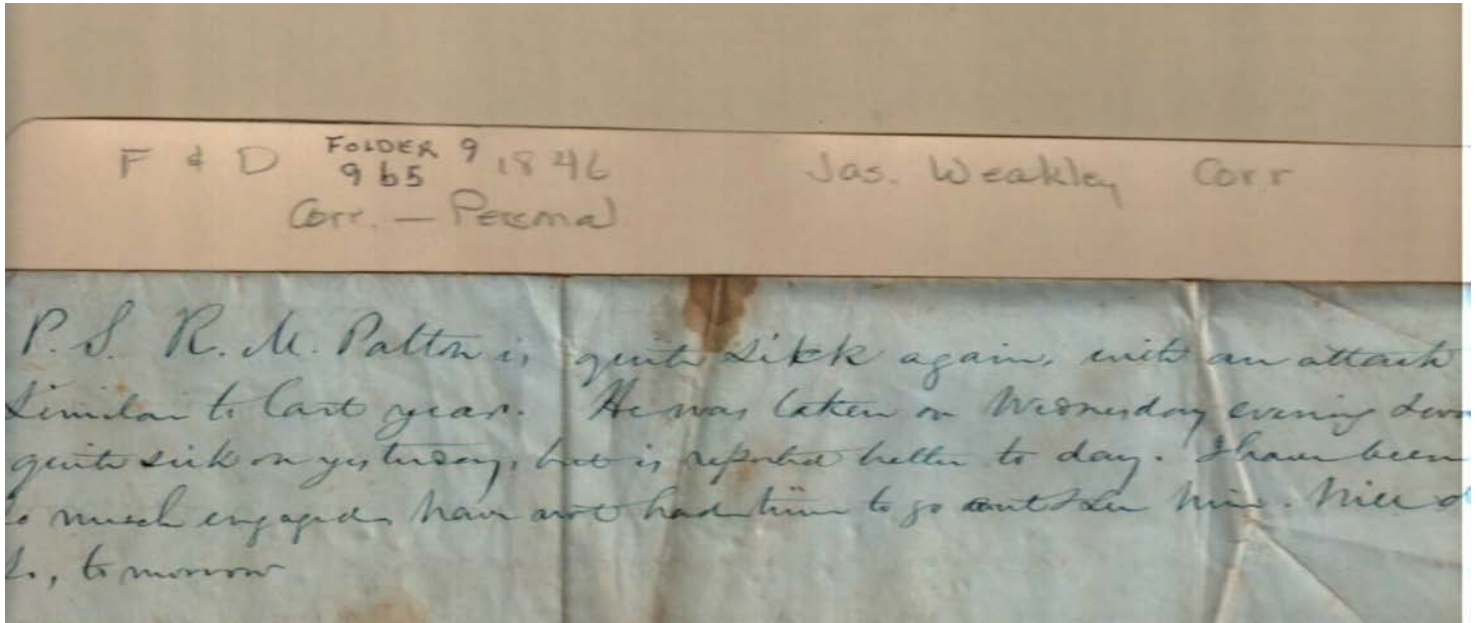 F & D FOLDER 9 1846 Jas. Weakley Corr
965
Corr. — Personal
P. S. R. M. Patton is quite sikk again, with an attack
similar to last year. He was taken on Wednesday evening
quite sick on yesterday, but is reported better to day. I have been
so much engaged have not had time to go out & see him. Will d
so, to morrow